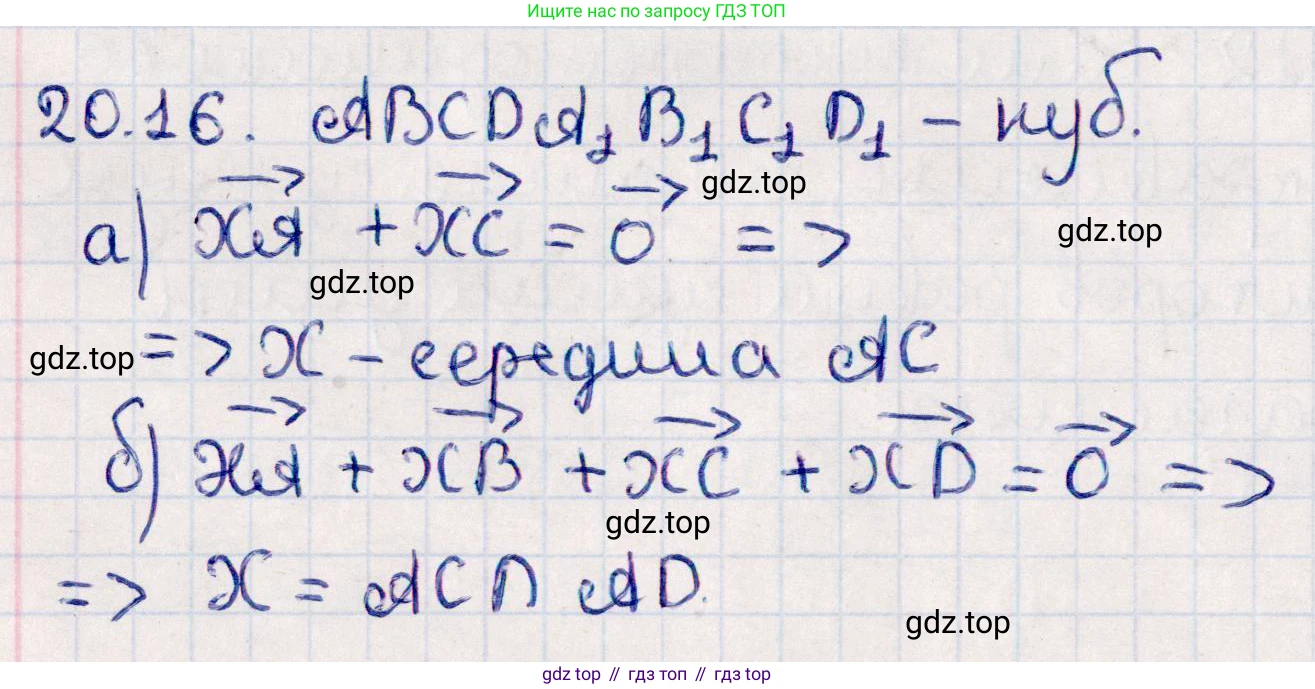 Ищите нас по запросу ГДЗ ТОП
20.16. ABCDA₁B₁C₁D₁ – куб.
gdz.top
а) XA + XC = 0 =>
gdz.top
gdz.top
gdz.top => X – середина AC
б) XA + XB + XC + XD = 0 =>
gdz.top
=> X = AC ∩ AD.
gdz.top
gdz top // гдз топ // gdz top